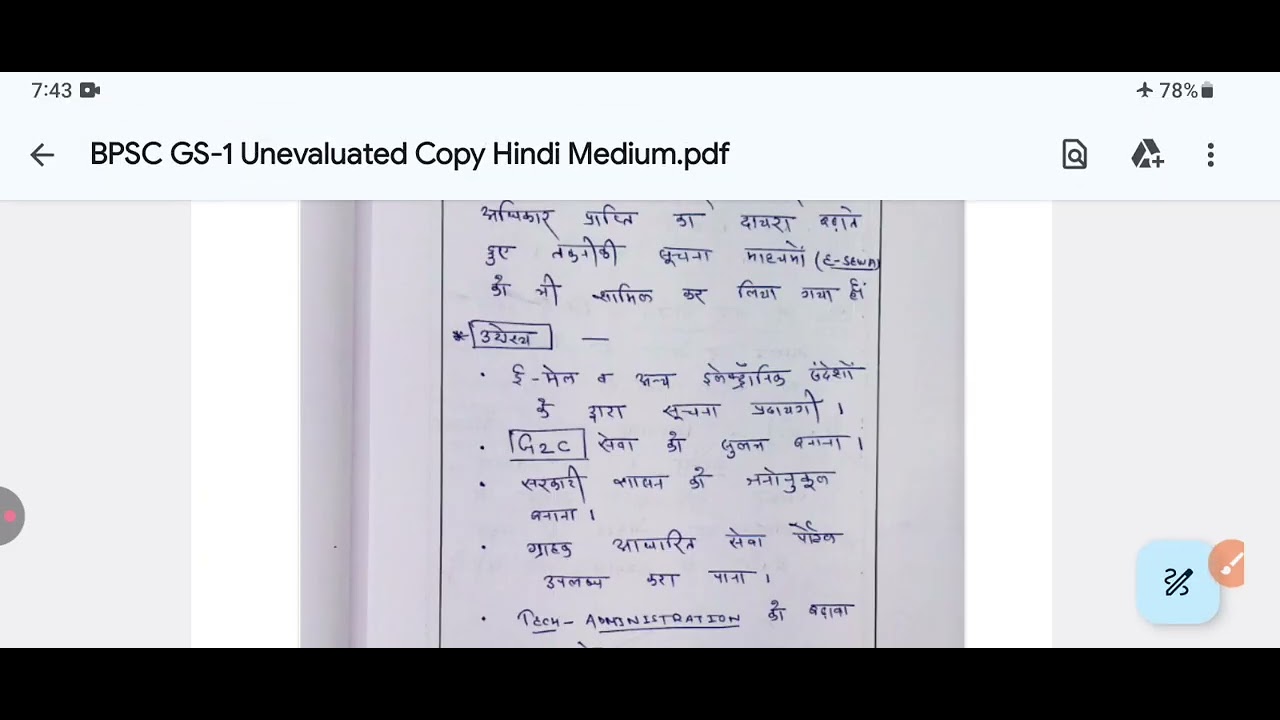 7:43
78%
BPSC GS-1 Unevaluated Copy Hindi Medium.pdf
अधिकार प्राप्ति का दायरा बढ़ाते
हुए तकनीकी सूचना माध्यमों (E-SEWA)
को भी शामिल कर लिया गया है।
* उद्देश्य —
• ई-मेल व अन्य इलेक्ट्रॉनिक संदेशों
के द्वारा सूचना प्रदायगी ।
• G2C सेवा को सुलभ बनाना ।
• सरकारी शासन को जनोनुकूल
बनाना ।
• ग्राहक आधारित सेवा पोर्टल
उपलब्ध करा पाना ।
• TECH - ADMINISTRATION को बढ़ावा